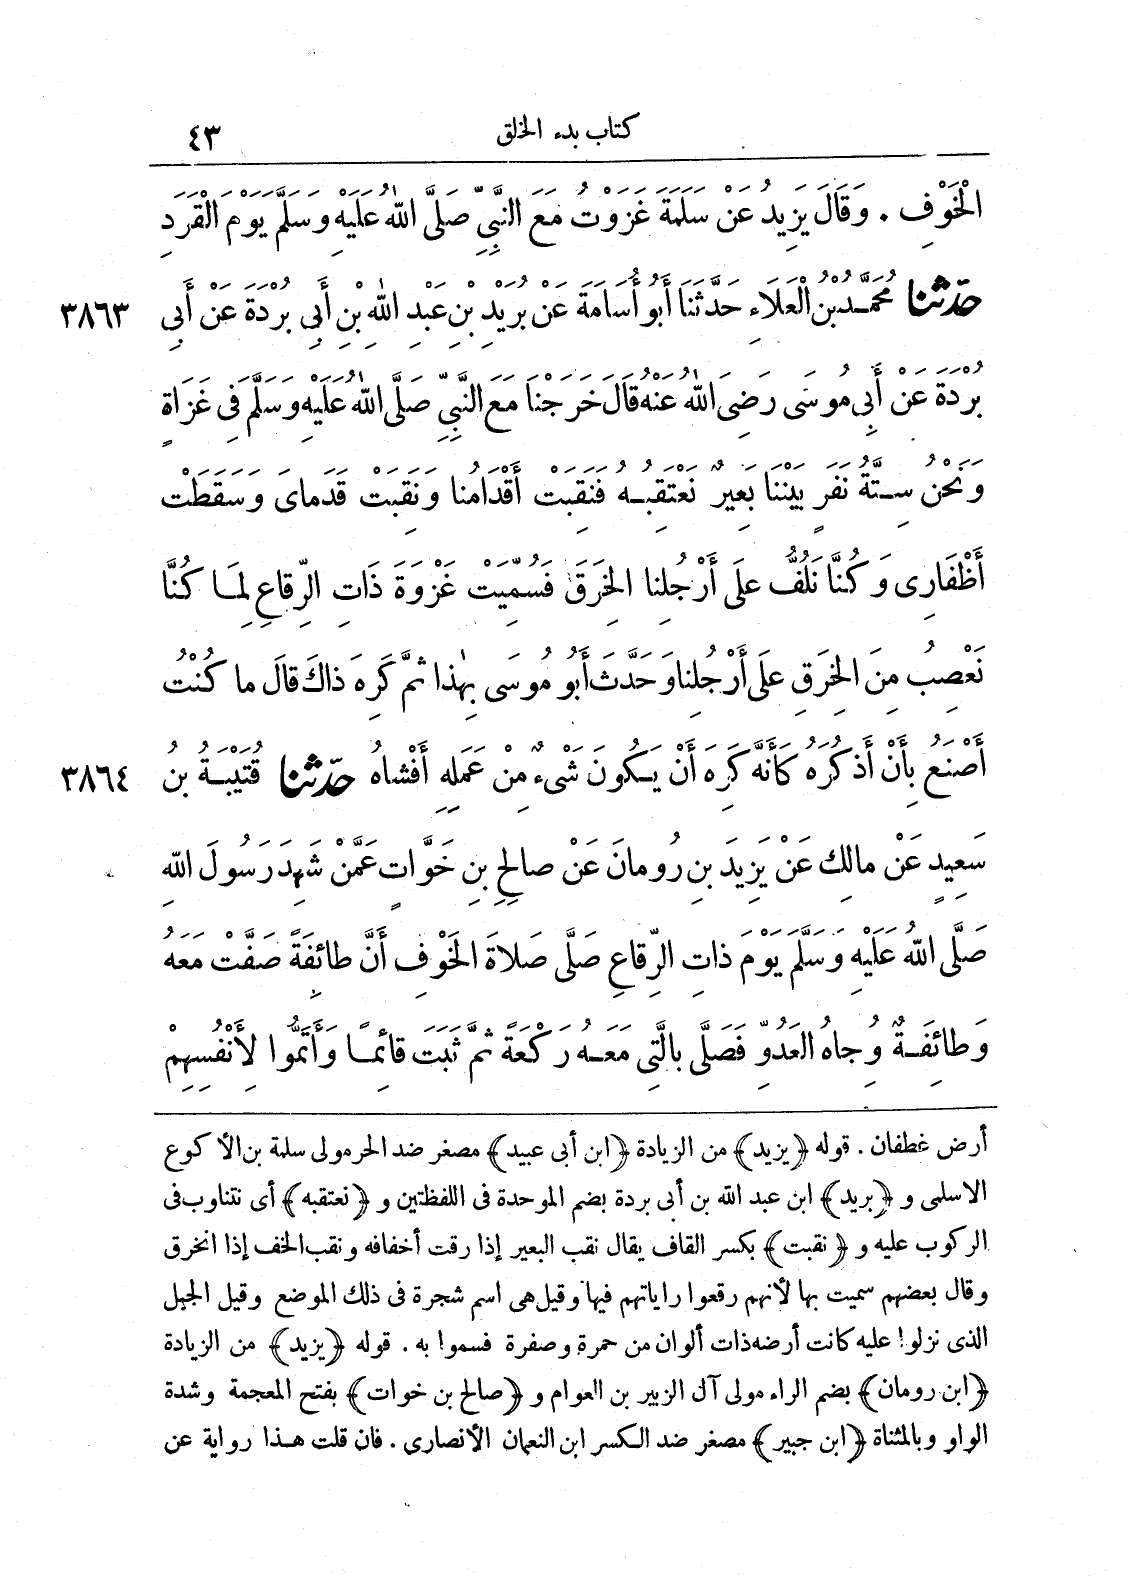 كتاب بدء الخلق ٤٣
الْخَوْفِ . وَقَالَ يَزِيدُ عَنْ سَلَمَةَ غَزَوْتُ مَعَ النَّبِيِّ صَلَّى اللهُ عَلَيْهِ وَسَلَّمَ يَوْمَ الْقَرَدِ
٣٨٦٣ حَدَّثَنَا مُحَمَّدُ بْنُ الْعَلَاءِ حَدَّثَنَا أَبُو أُسَامَةَ عَنْ بُرَيْدِ بْنِ عَبْدِ اللهِ بْنِ أَبِي بُرْدَةَ عَنْ أَبِي
بُرْدَةَ عَنْ أَبِي مُوسَى رَضِيَ اللهُ عَنْهُ قَالَ خَرَجْنَا مَعَ النَّبِيِّ صَلَّى اللهُ عَلَيْهِ وَسَلَّمَ فِي غَزَاةٍ
وَنَحْنُ سِتَّةُ نَفَرٍ بَيْنَنَا بَعِيرٌ نَعْتَقِبُهُ فَنَقِبَتْ أَقْدَامُنَا وَنَقِبَتْ قَدَمَاىَ وَسَقَطَتْ
أَظْفَارِى وَكُنَّا نَلُفُّ عَلَى أَرْجُلِنَا الخِرَقَ فَسُمِّيَتْ غَزْوَةَ ذَاتِ الرِّقَاعِ لِمَا كُنَّا
نَعْصِبُ مِنَ الخِرَقِ عَلَى أَرْجُلِنَا وَحَدَّثَ أَبُو مُوسَى بِهٰذَا ثُمَّ كَرِهَ ذَاكَ قَالَ مَا كُنْتُ
أَصْنَعُ بِأَنْ أَذْكُرَهُ كَأَنَّهُ كَرِهَ أَنْ يَكُونَ شَىْءٌ مِنْ عَمَلِهِ أَفْشَاهُ حَدَّثَنَا قُتَيْبَةُ بْنُ ٣٨٦٤
سَعِيدٍ عَنْ مالِكٍ عَنْ يَزِيدَ بنِ رُومانَ عَنْ صالِحِ بنِ خَوَّاتٍ عَمَّنْ شَهِدَ رَسُولَ اللهِ
صَلَّى اللهُ عَلَيْهِ وَسَلَّمَ يَوْمَ ذَاتِ الرِّقَاعِ صَلَّى صَلَاةَ الخَوْفِ أَنَّ طائِفَةً صَفَّتْ مَعَهُ
وَطَائِفَةٌ وُجاهُ العَدُوِّ فَصَلَّى بالَّتِى مَعَهُ رَكْعَةً ثُمَّ ثَبَتَ قائِمًا وَأَتَمُّوا لِأَنْفُسِهِمْ
أرض غطفان . قوله ﴿يزيد﴾ من الزيادة ﴿ابن أبى عبيد﴾ مصغر ضد الحر مولى سلمة بن الأكوع
الاسلمى و ﴿بريد﴾ ابن عبد الله بن أبى بردة بضم الموحدة فى اللفظتين و ﴿نعتقبه﴾ أى نتناوب فى
الركوب عليه و ﴿نقبت﴾ بكسر القاف يقال نقب البعير إذا رقت أخفافه ونقب الخف إذا انخرق
وقال بعضهم سميت بها لأنهم رقعوا راياتهم فيها وقيل هى اسم شجرة فى ذلك الموضع وقيل الجبل
الذى نزلوا عليه كانت أرضه ذات ألوان من حمرة وصفرة فسموا به . قوله ﴿يزيد﴾ من الزيادة
﴿ابن رومان﴾ بضم الراء مولى آل الزبير بن العوام و ﴿صالح بن خوات﴾ بفتح المعجمة وشدة
الواو وبالمثناة ﴿ابن جبير﴾ مصغر ضد الكسر ابن النعمان الأنصارى . فان قلت هذا رواية عن